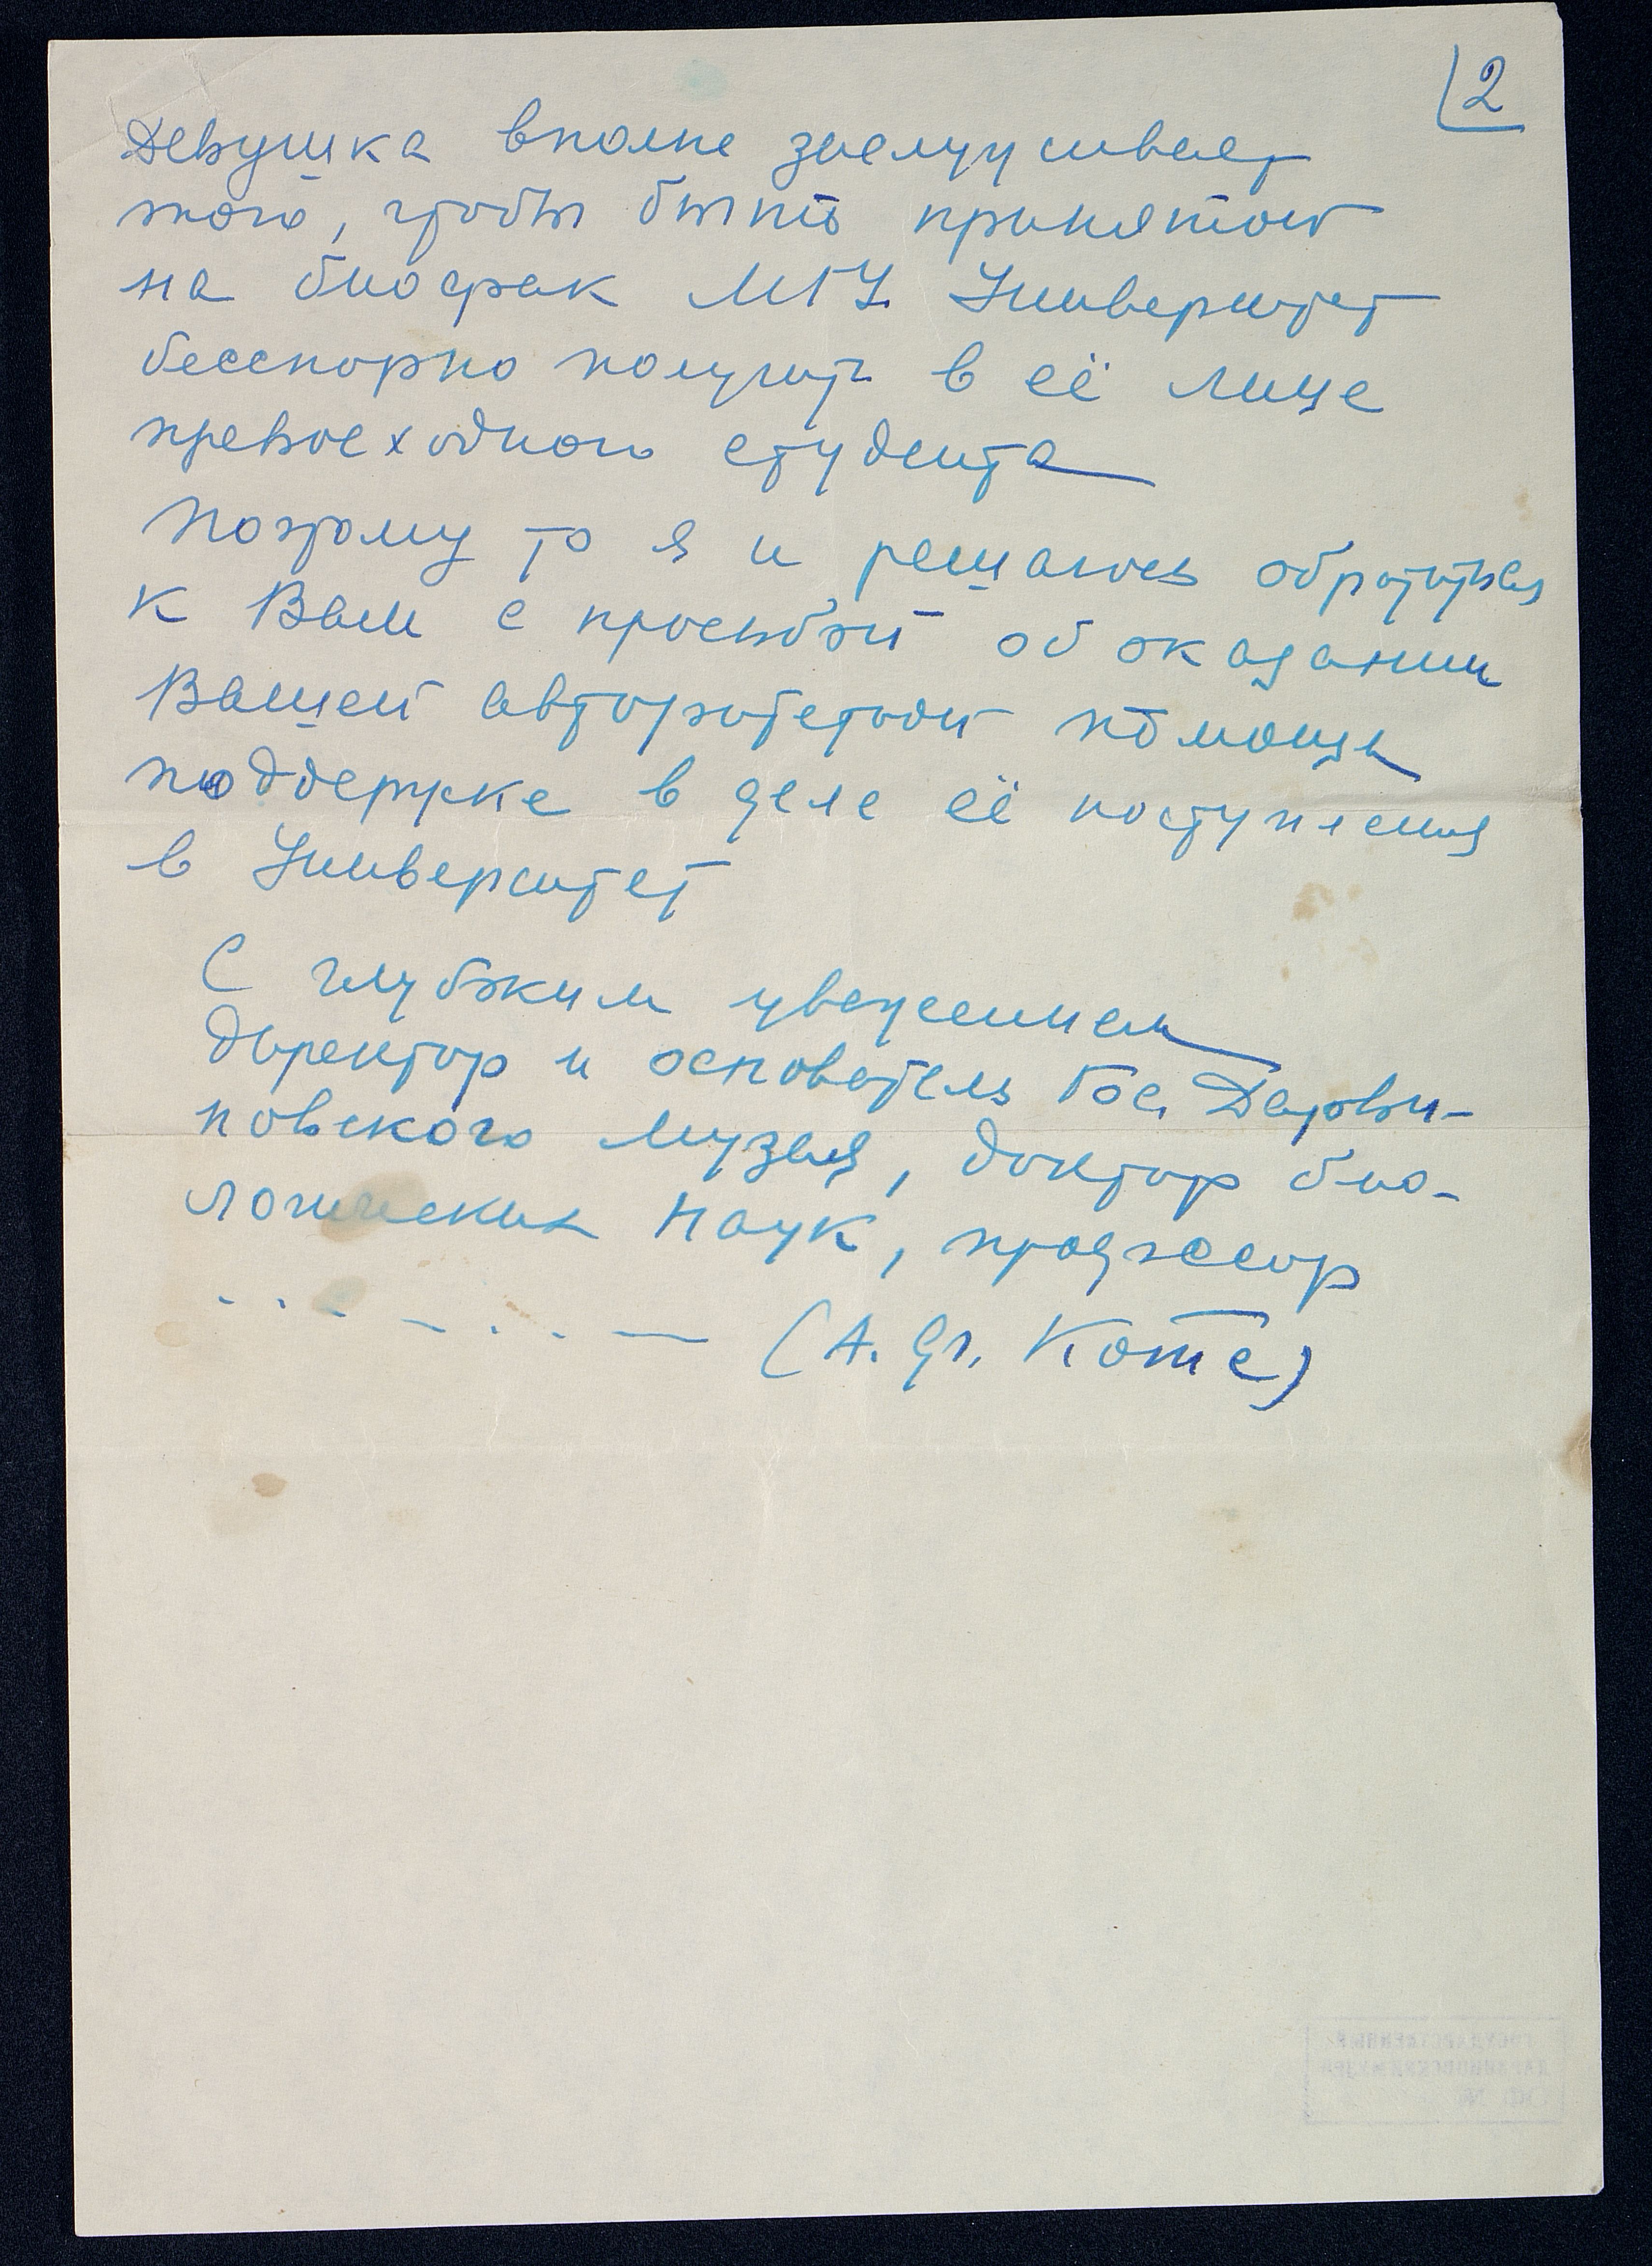 2
Девушка вполне заслуживает
того, чтобы быть принятой
на биофак МГУ. Университет
бесспорно получит в её лице
превосходного студента
Поэтому то я и решаюсь обратиться
к Вам с просьбой об оказании
Вашей авторитетной помощи
поддержке в деле её поступления
в Университет
С глубоким уважением
Директор и основатель Гос. Дарви-
новского музея, доктор био-
логических наук, профессор
(А. Фг. Котс)
ГОСУДАРСТВЕННЫЙ
ДАРВИНОВСКИЙ МУЗЕЙ